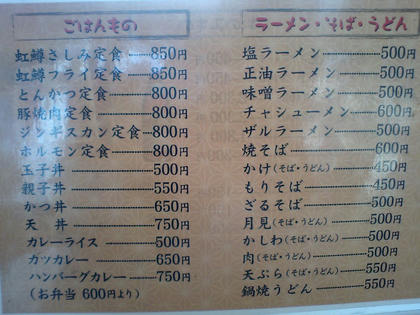 ごはんもの
虹鱒さしみ定食 850円
虹鱒フライ定食 850円
とんかつ定食 800円
豚焼肉定食 800円
ジンギスカン定食 800円
ホルモン定食 800円
玉子丼 500円
親子丼 550円
かつ丼 650円
天丼 750円
カレーライス 500円
カツカレー 650円
ハンバーグカレー 750円
(お弁当 600円より)
ラーメン・そば・うどん
塩ラーメン 500円
正油ラーメン 500円
味噌ラーメン 500円
チャシューメン 600円
ザルラーメン 500円
焼そば 600円
かけ(そば・うどん) 450円
もりそば 450円
ざるそば 500円
月見(そば・うどん) 500円
かしわ(そば・うどん) 500円
肉(そば・うどん) 500円
天ぷら(そば・うどん) 550円
鍋焼うどん 550円